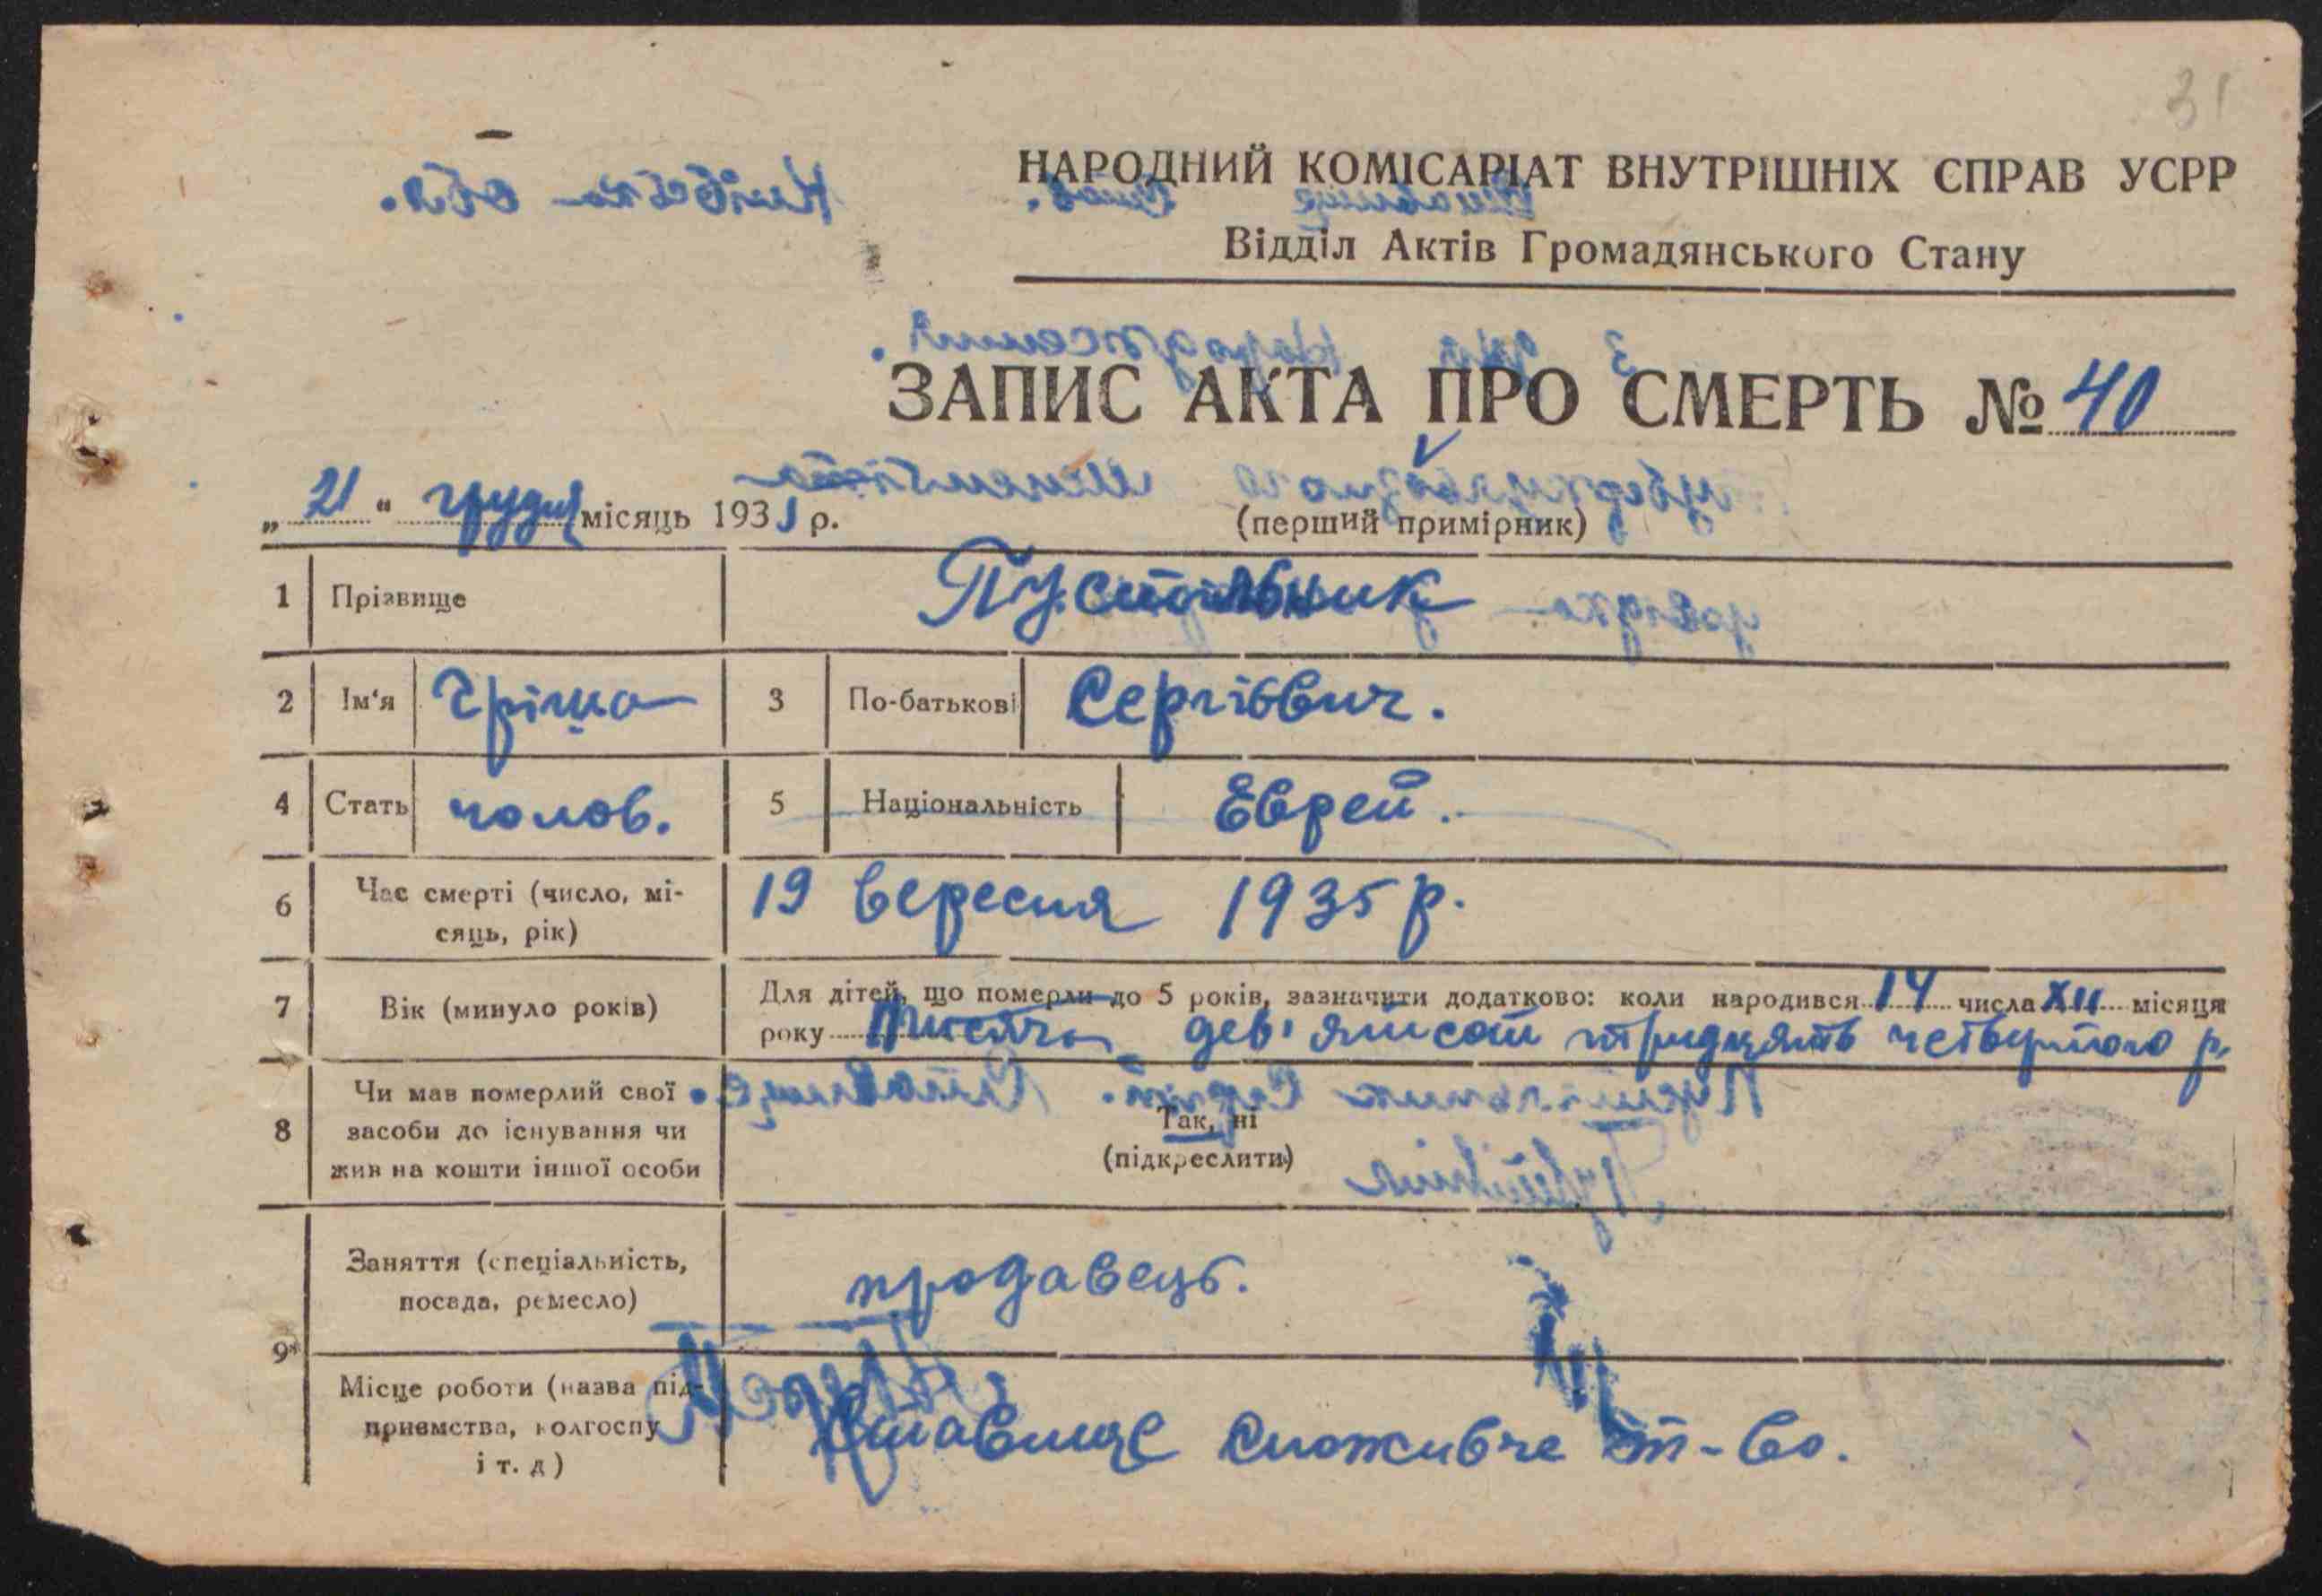 31
НАРОДНИЙ КОМІСАРІАТ ВНУТРІШНІХ СПРАВ УСРР
Відділ Актів Громадянського Стану
ЗАПИС АКТА ПРО СМЕРТЬ № 40
„21“ грудня місяць 193 р.
(перший примірник)
1 Прізвище Пустильник
2 Ім‘я Гріша 3 По-батькові Сергієвич.
4 Стать чолов. 5 Національність Еврей.
6 Час смерті (число, мі-
сяць, рік) 19 вересня 1935 р.
7 Вік (минуло років) Для дітей, що померли до 5 років, зазначити додатково: коли народився 14 числа XII місяця
року тисяча дев'ятсот тридцять четвертого р.
8 Чи мав померлий свої
засоби до існування чи
жив на кошти іншої особи
Так, ні
(підкреслити)
9 Заняття (спеціальність,
посада, ремесло) продавець.
Місце роботи (назва під-
приємства, колгоспу
і т. д) Ставище Споживче т-во.